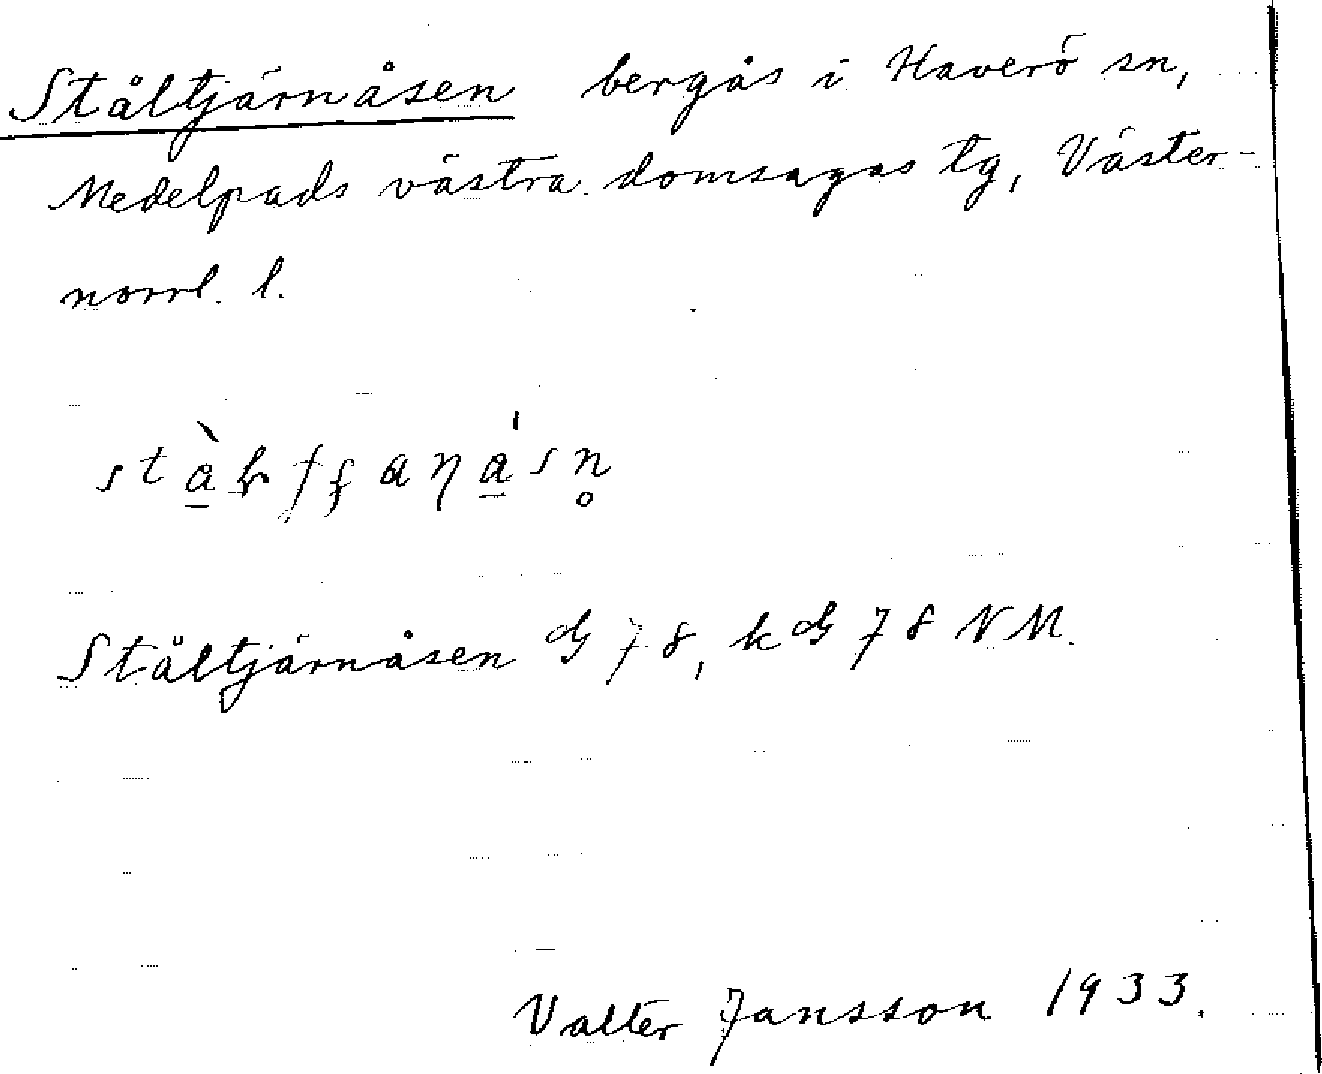 Ståltjärnåsen bergås i Haverö sn,
Medelpads västra domsagas tg, Väster-
norrl. l.
Ståltjärnåsen G 78, k G 78 NM.
Valter Jansson 1933.